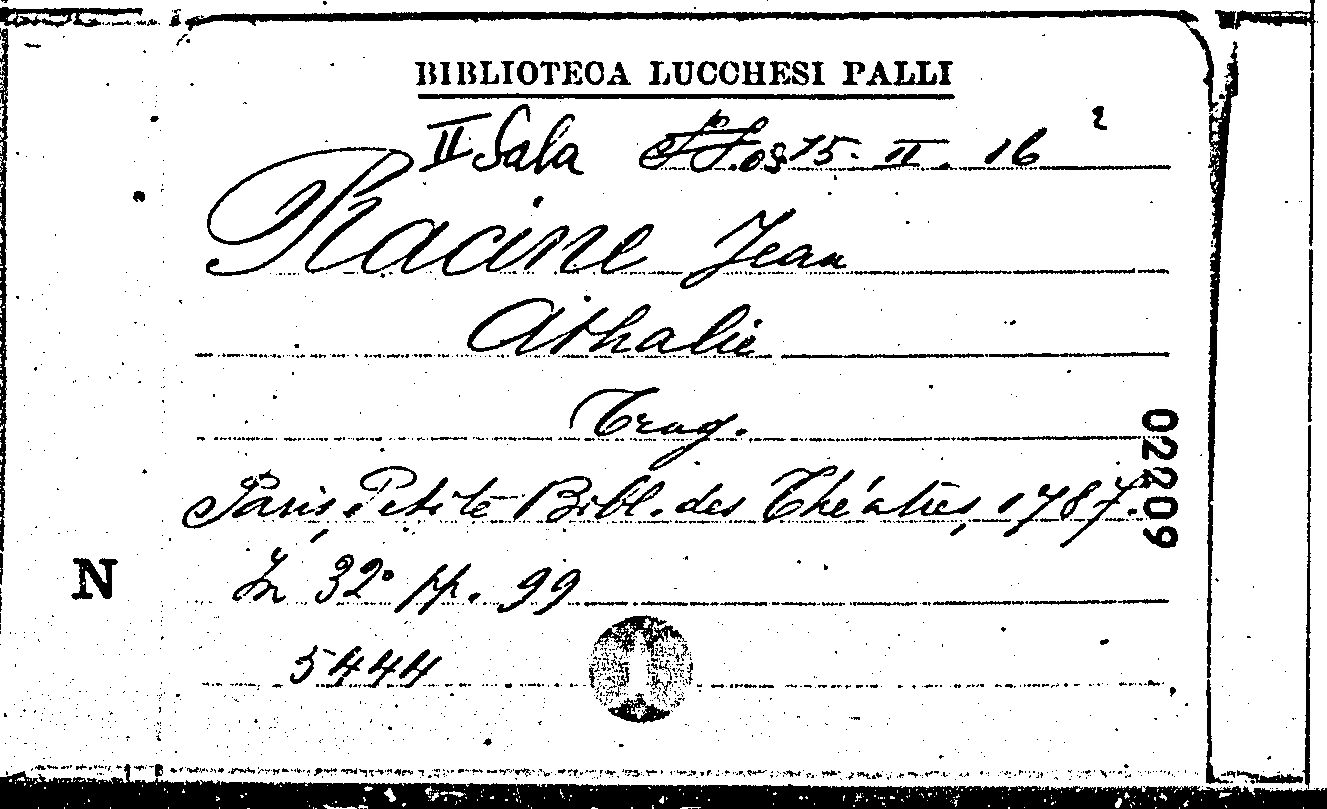 BIBLIOTECA LUCCHESI PALLI
II Sala 15. II. 16 2
Racine Jean
Athalie
Trag.
Paris, Petite Bibl. des Théatres, 1787.
In 32° pp. 99
5444
N
02209
1